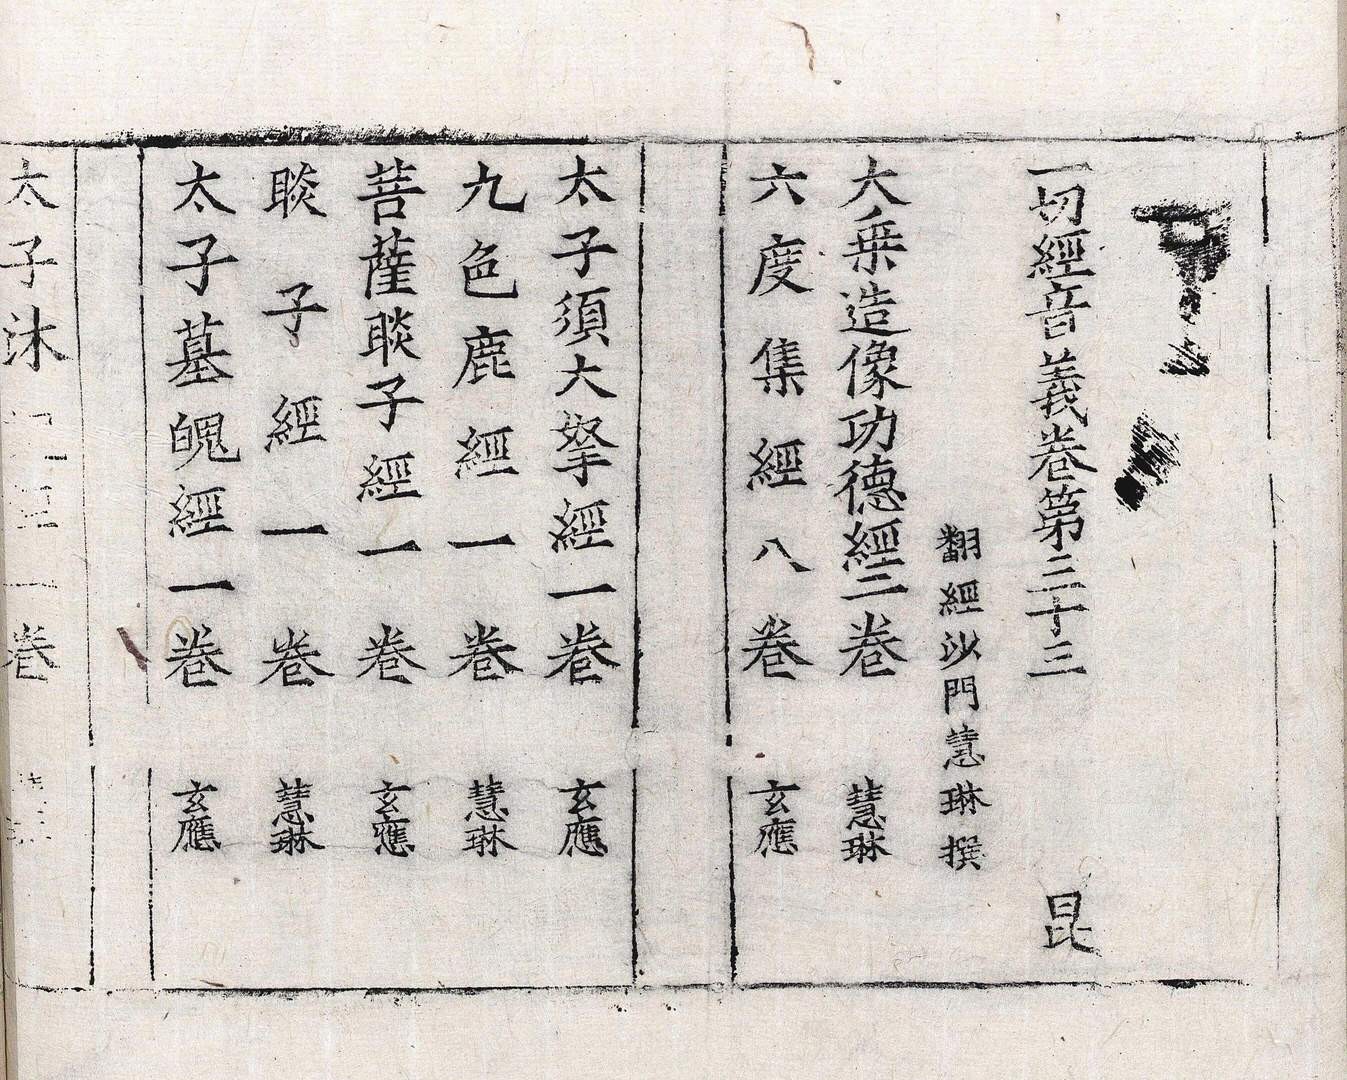 一切經音義卷第三十三 昆
翻經沙門慧琳撰
大乗造像功德經二卷 慧琳
六度集經八卷 玄應
太子須大拏經一卷 玄應
九色鹿經一卷 慧琳
菩薩睒子經一卷 玄應
睒子經一卷 慧琳
太子墓魄經一卷 玄應
太子沐 經一卷